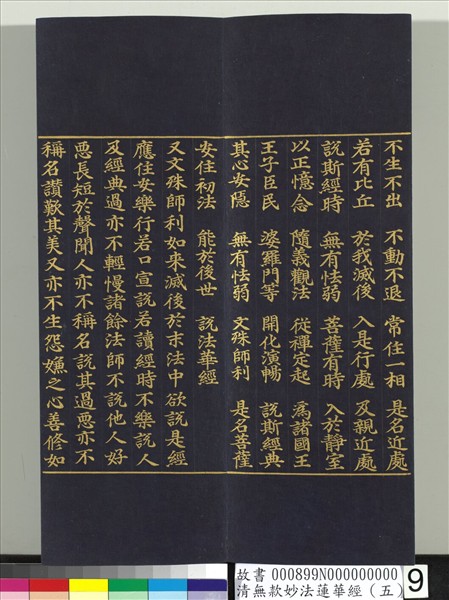 不生不出　不動不退　常住一相　是名近處
若有比丘　於我滅後　入是行處　及親近處
說斯經時　無有怯弱　菩薩有時　入於靜室
以正憶念　隨義觀法　從禪定起　爲諸國王
王子臣民　婆羅門等　開化演暢　說斯經典
其心安隱　無有怯弱　文殊師利　是名菩薩
安住初法　能於後世　說法華經
又文殊師利如來滅後於末法中欲說是經
應住安樂行若口宣說若讀經時不樂說人
及經典過亦不輕慢諸餘法師不說他人好
惡長短於聲聞人亦不稱名說其過惡亦不
稱名讚歎其美又亦不生怨嫌之心善修如
故書 000899N000000000
清無款妙法蓮華經（五）
9